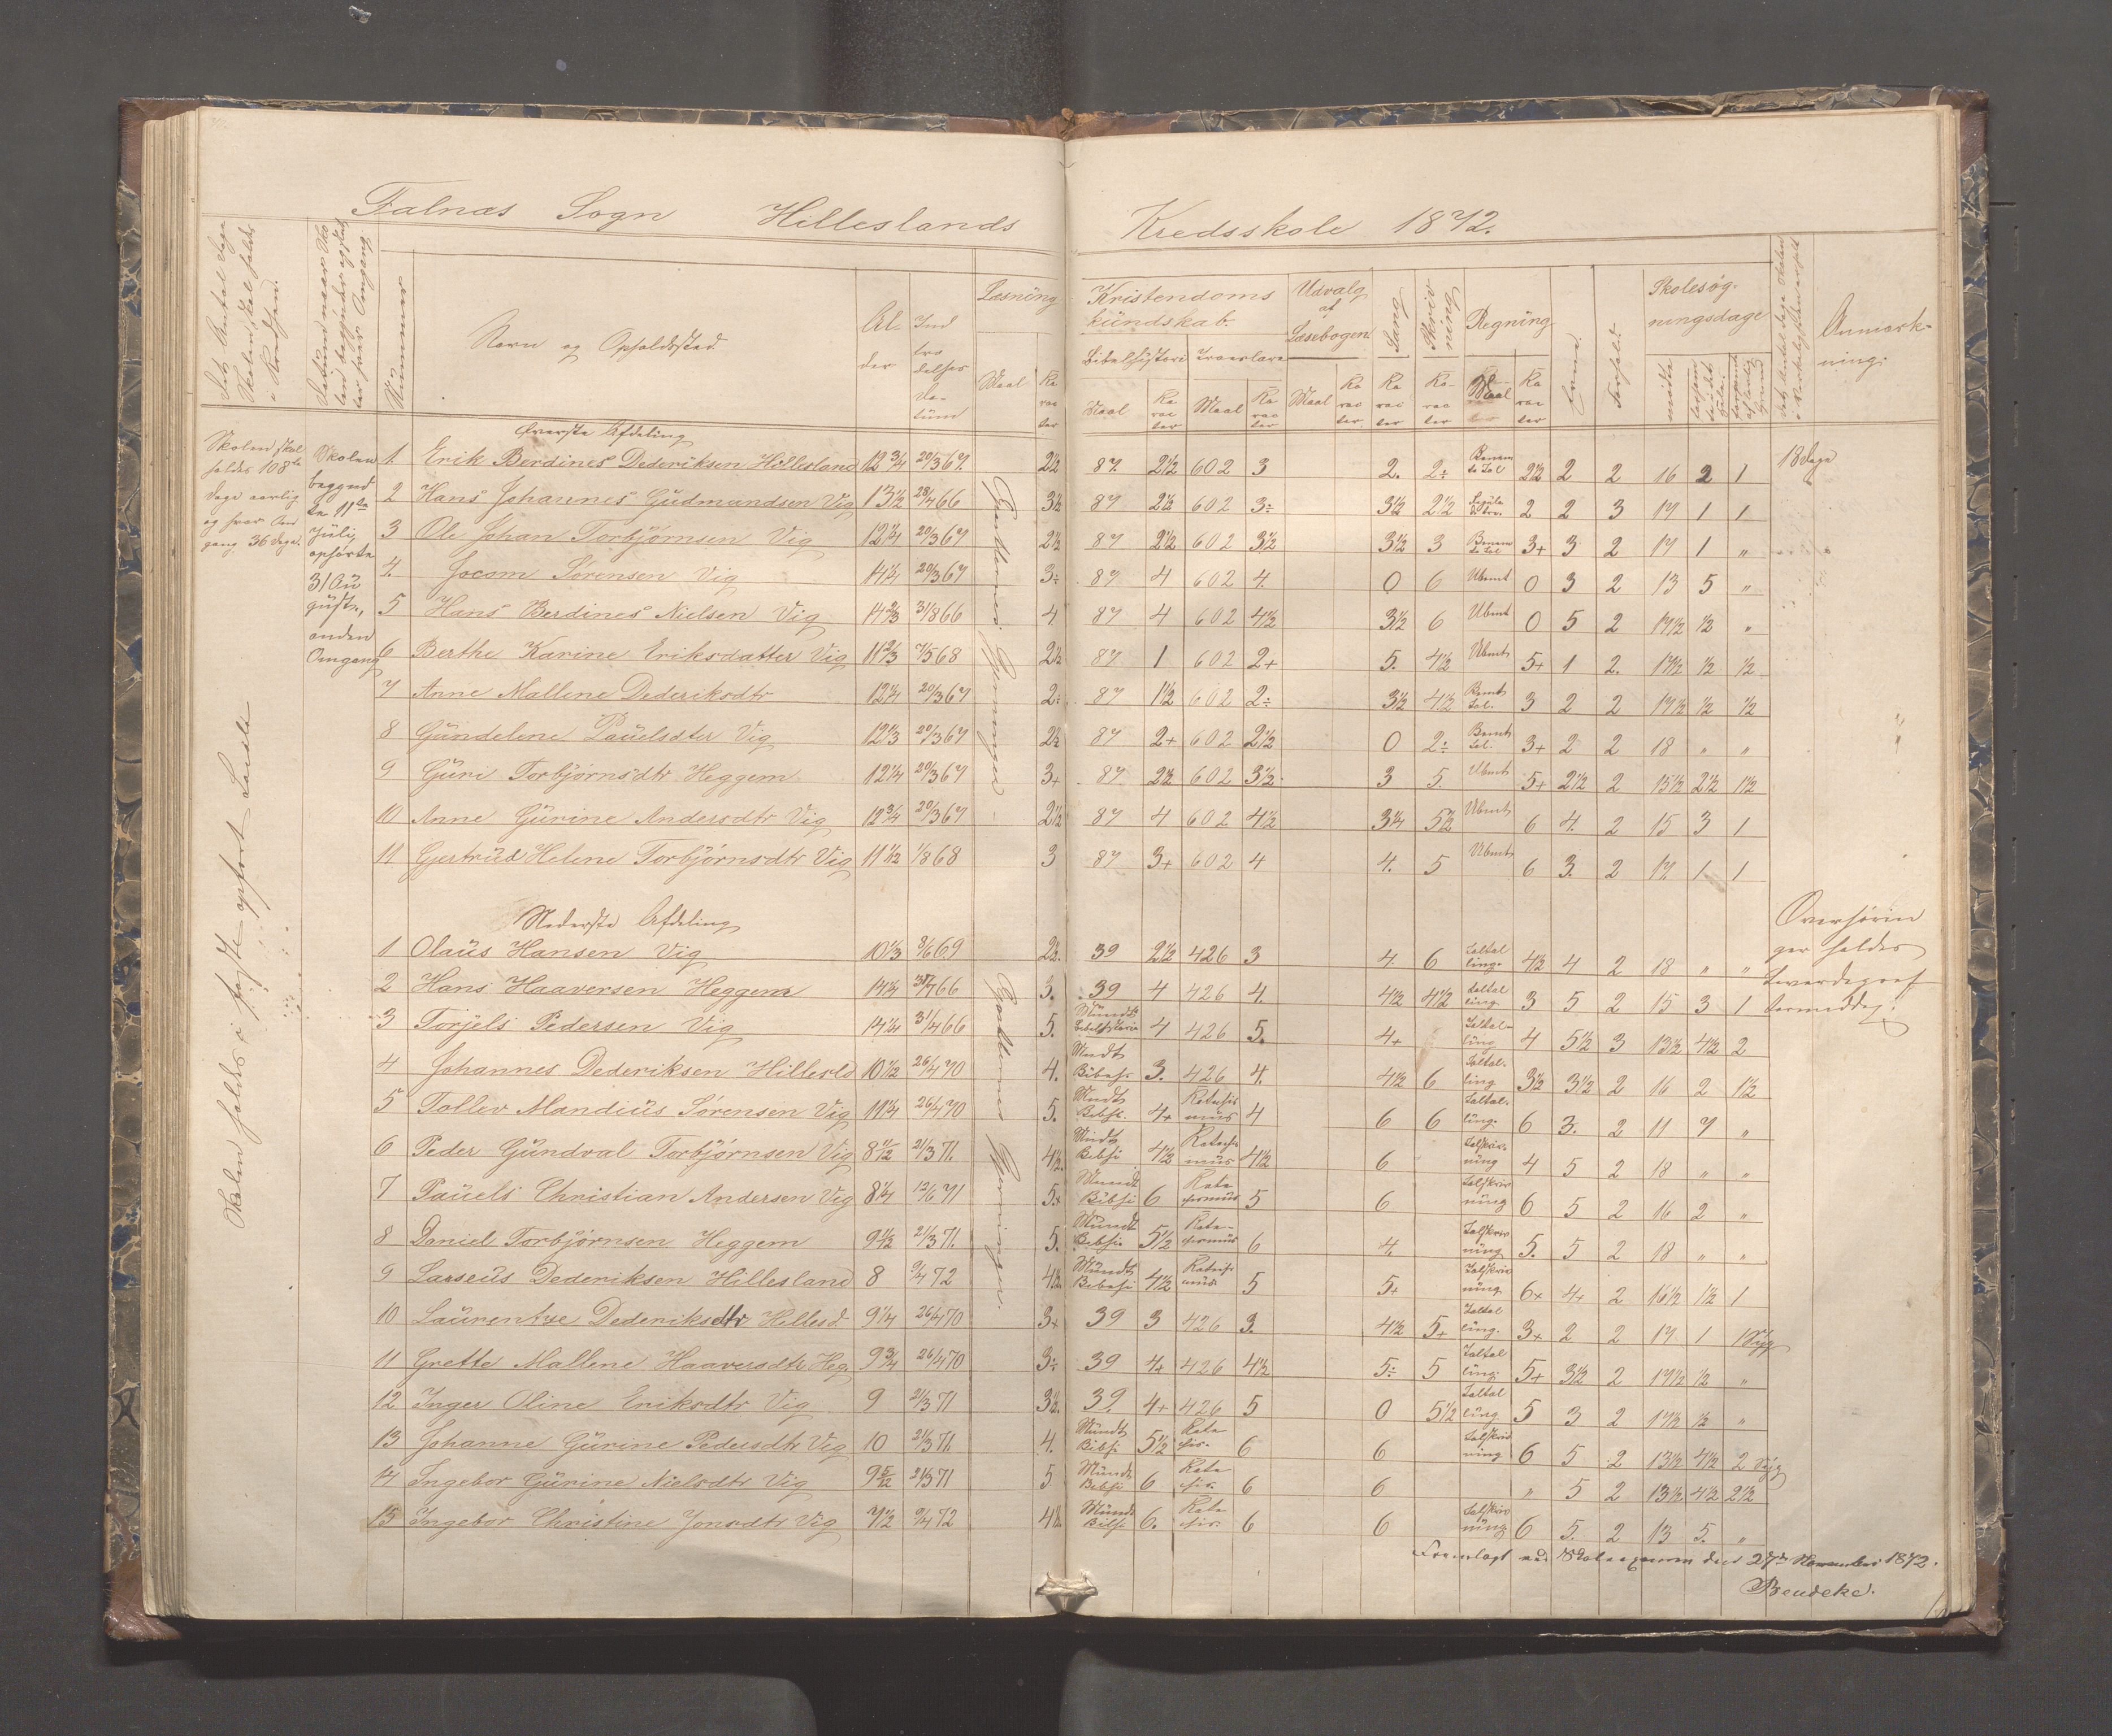 Falnæs Sogn Hilleslands Kredsskole 1872.
Det Antal Dage Skolen skal holdes i Kredsen.
Datum naar Skolen begynder og slutter hver Omgang
Nummer
Navn og Opholdssted.
Alder
Indtrædelses Datum
Læsning
Maal
Karacter
Kristendoms kundskab.
Bibelhistorie
Troeslære
Maal
Karacter
Maal
Karacter
Udvalg af Læsebogen
Maal
Karacter
Sang
Karacter
Skrivning
Karacter
Regning
Maal
Karacter
Evner
Forhold
Skolesøgningsdage
mødte
Anmærkning.
Skolen skal holdes 108te Dage aarlig og hver Omgang 36 Dage.
Skolen begyndte 11te Juli, ophørte 31 August, anden Omgang
Skolen holdes i faste opført Locale
Øverste Afdeling
1. Erik Berdines Dederiksen Hillesland 12 3/4 20/3 67. 2 1/2 87. 2 1/2 602 3 2. 2÷ 2 1/2 2 2 16 2 1 18 Dage
2 Hans Johannes Gudmandsen Vig 13 1/2 28/4 66 3 1/2 87 2 1/2 602 3÷ 3 1/2 2 1/2 2 2 3 17 1 1
3 Ole Johan Torbjørnsen Vig 12 1/4 20/3 67 2 1/2 87 2 1/2 602 3 1/2 3 1/2 3 3+ 3 2 17 1 „
4. Jocom Sørensen Vig 14 1/4 20/3 67 3÷ 87 4 602 4. 0 6 Ubmt 0 3 2 13 5 „
5 Hans Berdines Nielsen Vig 14 2/3 31/8 66 4 87 4 602 4 1/2 3 1/2 6 Ubmt 0 5 2 17 1/2 1/2 „
6 Berthe Karine Eriksdatter Vig 11 2/3 7/5 68 2 1/2 87 1 602 2+ 5. 4 1/2 Ubmt 5+ 1 2. 17 1/2 1/2 1/2
7 Anne Mallene Dederiksdtr 12 1/4 20/3 67 2÷ 87 1 1/2 602 2÷ 3 1/2 4 1/2 3 2 2 17 1/2 1/2 1/2
8 Gundelene Pauelsdter Vig 12 1/3 20/3 67 2 1/2 87 2+ 602 2 1/2 0 2÷ 3+ 2 2 18 „ „
9 Guri Torbjørnsdtr Heggem 12 1/4 20/3 67 3+ 87 2 1/2 602 3 1/2 3 5. Ubmt 5+ 2 1/2 2 15 1/2 2 1/2 1 1/2
10 Anne Gurine Andersdtr Vig 12 3/4 20/3 67 2 1/2 87 4 602 4 1/2 3 1/4 5 1/2 Ubmt 6 4. 2 15 3 1
11 Gjertrud Helene Torbjørnsdtr Vig 11 1/12 1/8 68 3 87 3+ 602 4 4. 5 Ubmt 6 3. 2 17 1 1
Nederste Afdeling
1 Olaus Hansen Vig 10 1/3 8/6 69 2 1/2. 39 2 1/2 426 3 4. 6 Taltælling. 4 1/2 4 2 18 „ „
2 Hans Haaversen Heggem 14 1/4 66 3. 39 4 426 4. 4 1/2 4 1/2 Taltælling 3 5 2 15 3 1
3 Torjels Pedersen Vig 14 1/4 31/4 66 5. Mundt Bibelhistorie 4 426 5. 4+ Taltælling 4 5 1/2 3 13 1/2 4 1/2 2
4 Johannes Dederiksen Hillesld 10 1/2 26/4 70 4. Mundt Bibehi. 3. 426 4. 4 1/2 6 Taltælling 3 1/2 3 1/2 2 16 2 1 1/2
5 Tollev Mandius Sørensen Vig 11 1/4 26/4 70 5. Mundt Bibhi. 4+ Katechismus 4 6 6 Taltælling. 6 3. 2 11 7 „
6 Peder Gundval Torbjørnsen Vig 8 1/2 21/3 71. 4 1/2. Mundt Bibhi 4 1/2 Katechismus 4 1/2 6 Talskrivning 4 5 2 18 „ „
7 Pauels Christian Andersen Vig 8 1/4 12/6 71 5+ Mundt Bibhi 6 Katechismus 5 6 Talskrivning 6 5 2 16 2 „
8 Daniel Torbjørnsen Heggem 9 1/2 21/3 71. 5. Mundt Bibhi 5 1/2 Katechismus 6 4. Talskrivning 5. 5 2 18 „ „
9 Larseus Dederiksen Hillesland 8 9/4 72 4 1/2. Mundt Bibehi 4 1/2 Katechismus 5 5+ Talskrivning 6+ 4+ 2 16 1/2 1 1/2 1
10 Laurentze Dederiksdtr Hillesd 9 1/4 26/4 70 3+ 39 3 426 3. 4 1/2 5+ Taltælling. 3+ 2 2 17 1 1 Syg
11 Grette Mallene Haaversdtr Heg 9 3/4 26/4 70 3÷ 39 4+ 426 4 1/2 5÷ 5 Taltælling. 5+ 3 1/2 2 17 1/2 1/2 „
12 Inger Oline Eriksdtr Vig 9 21/3 71 3 1/2. 39. 4+ 426 5 0 5 1/2 Taltælling. 5 3 2 17 1/2 1/2 „
13 Johanne Gurine Pedersdtr Vig 10 21/3 71. 4. Mundt Bibhi. 5 1/2 6 6 Talskrivning 6 5 2 13 1/2 4 1/2 2 Syg
14 Ingebor Gurine Nielsdtr Vig 9 5/12 21/3 71 5. Mundt Bibhi 6 6 6 „ 5 2 13 1/2 4 1/2 2 1/2
15 Ingebor Christine Jonsdtr Vig 7 1/2 9/4 72 4 1/2. Mundt Bibhi 6. 6 6 Talskrivning 6 5. 2 13 5. „
Overhøringer holdes Løverdagseftermiddag.
Fremlagt ved Skoleexamen den 27de November 1872.
Bendeke.